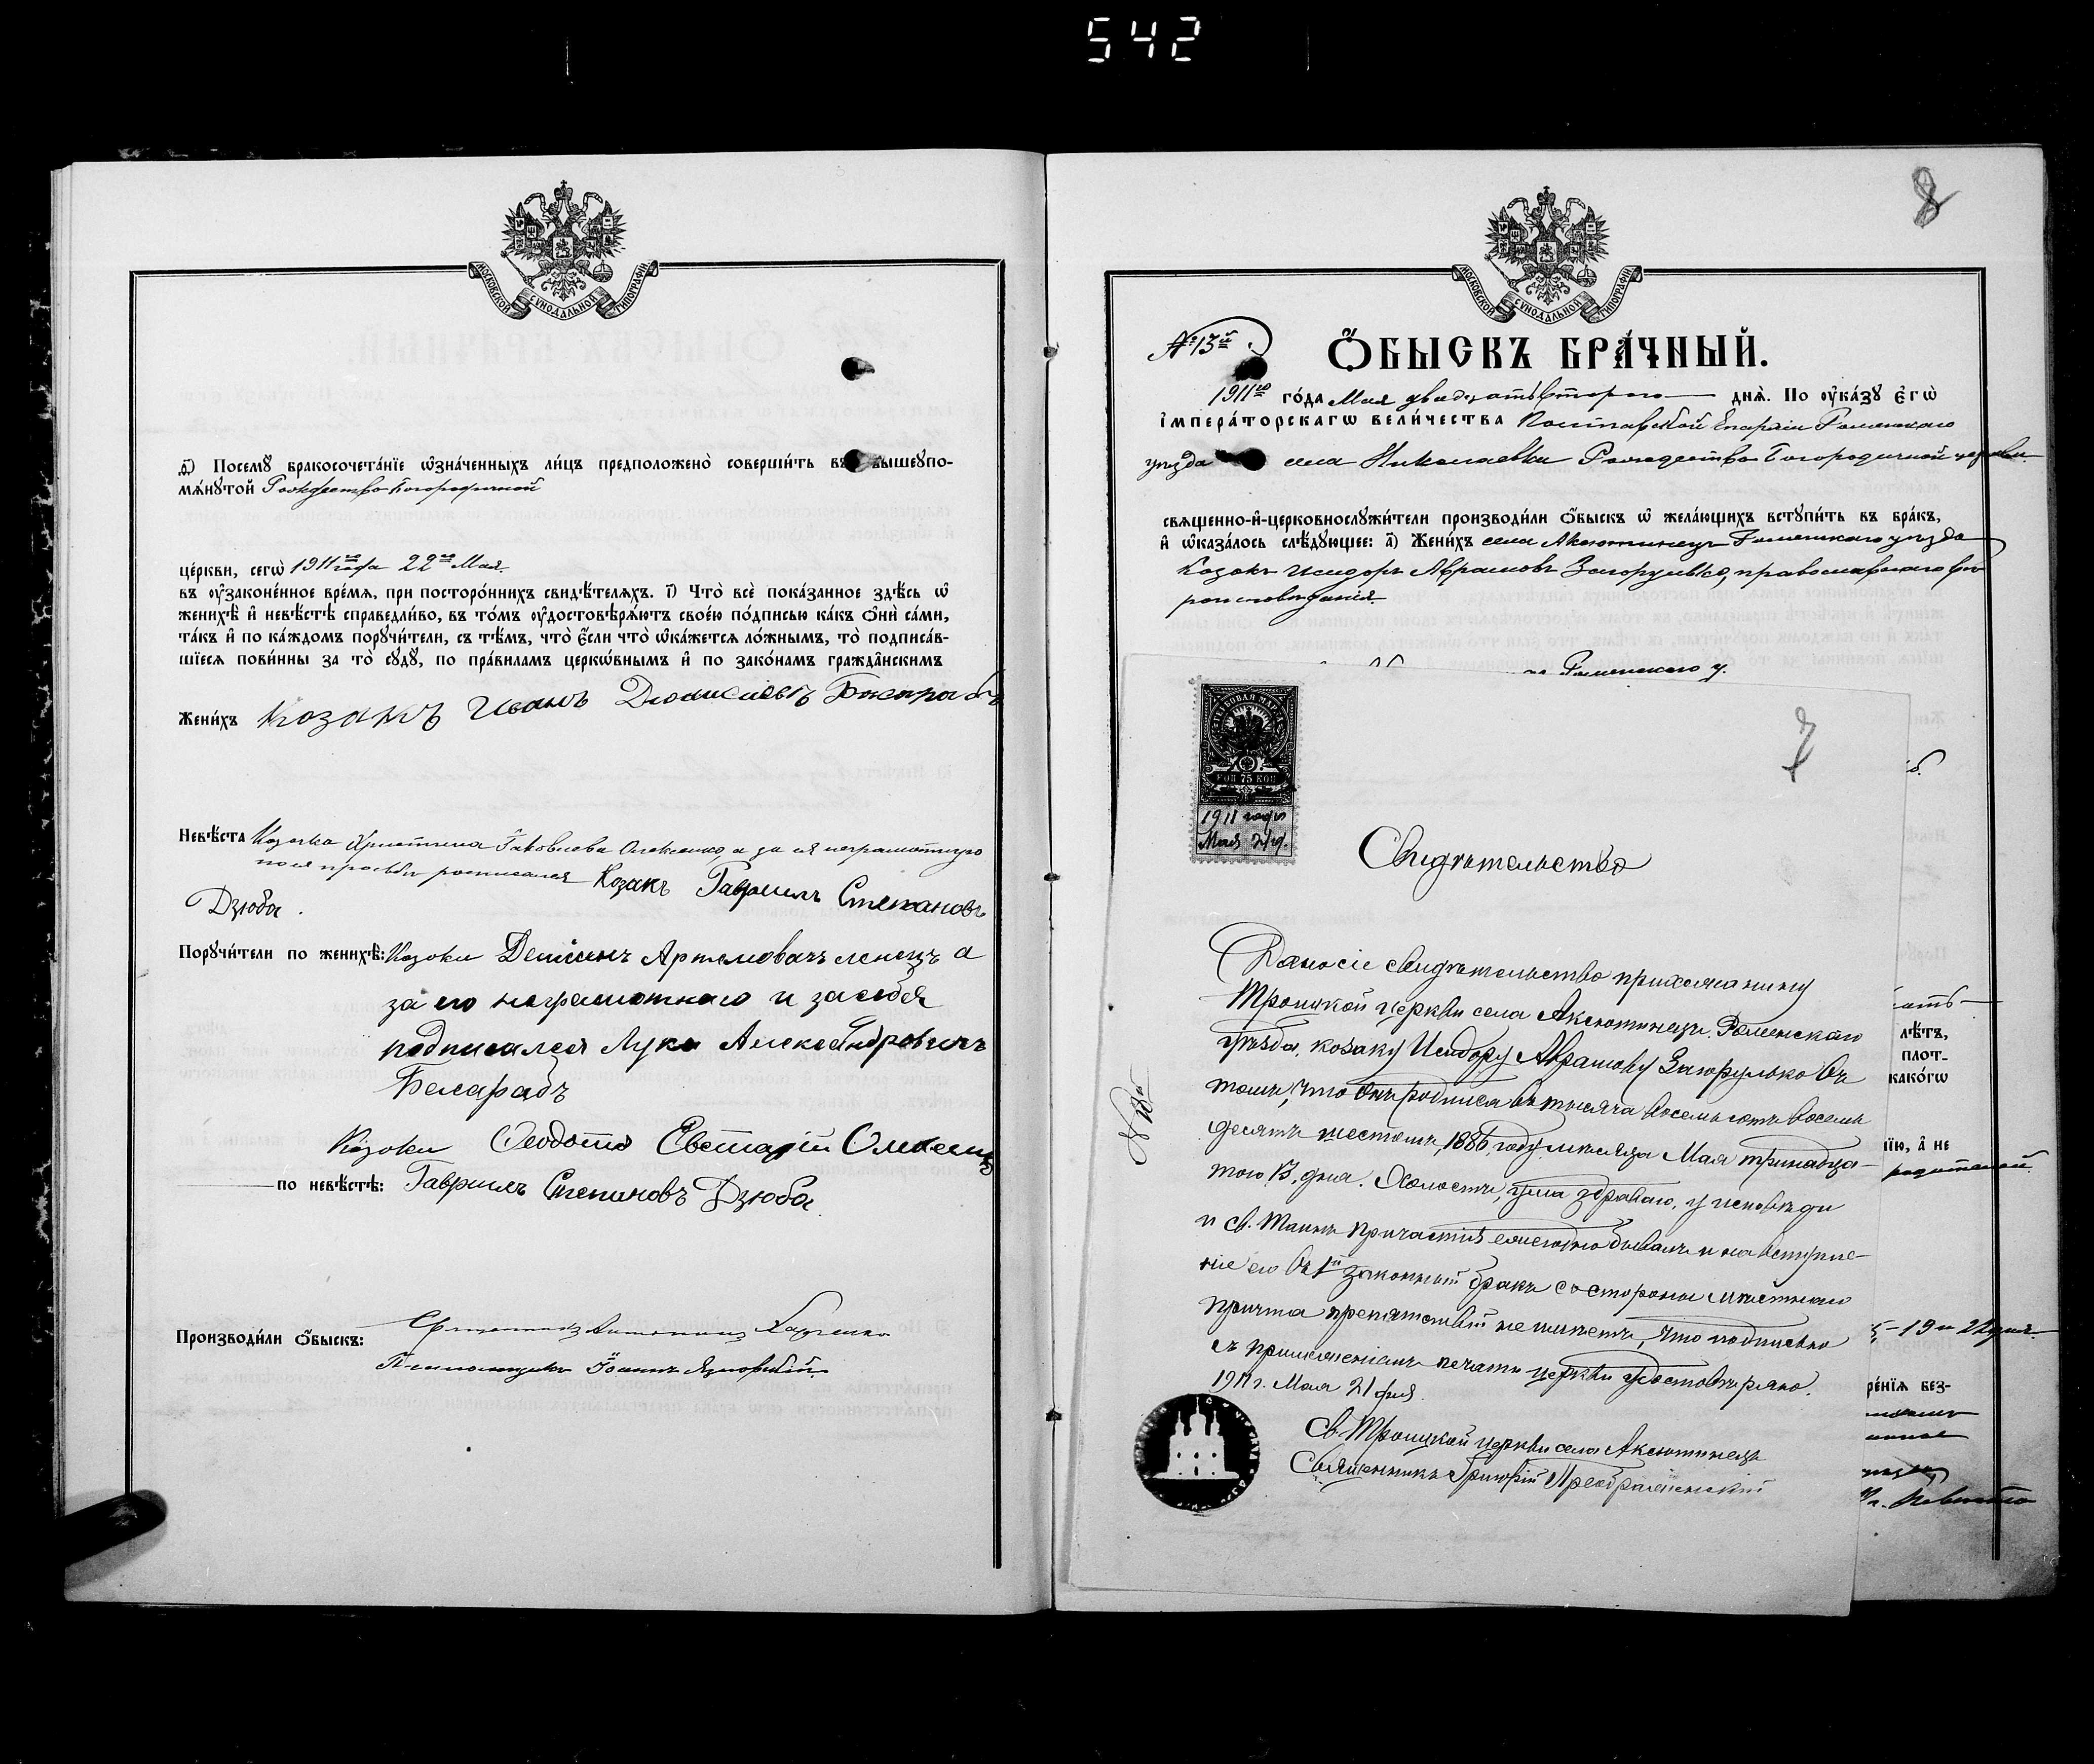 542
МОСКОВСКОЙ СУНОДАЛЬНОЙ ТИПОГРАФІИ
д҃) Посемꙋ̀ бракосочета́нїе ѡ҆зна́ченныхъ ли́цъ предположено̀ соверши́ть въ вышеꙋпо-
мѧ́нꙋтой Рождество-Богородичной
це́ркви, сегѡ̀ 1911го года 22го Мая.
въ ᲂу҆зако́ненное вре́мѧ, при посторо́ннихъ свидѣ́телѧхъ. і҃) Что̀ всѐ пока́занное здѣ́сь ѡ҆
женихѣ̀ и҆ невѣ́стѣ справедли́во, въ то́мъ ᲂу҆достовѣрѧ́ютъ свое́ю по́дписью ка́къ ѻ҆нѝ са́ми,
та́къ и҆ по ка́ждомъ порꙋчи́тели, съ тѣ́мъ, что̀ є҆́сли что̀ ѡ҆ка́жетсѧ ло́жнымъ, то̀ подписа́в-
шїесѧ пови́нны за то̀ сꙋдꙋ̀, по пра́виламъ церко́внымъ и҆ по зако́намъ гражда̑нскимъ
Жени́хъ Козакъ Иванъ Дионисіевъ
Невѣ́ста Козачка Христина Іаковлева Олексенко, а за ея неграмотную
по ея просьбѣ росписался Козакъ Гавріилъ Степановъ
Дзюба.
Порꙋчи́тели по женихѣ̀: Козаки Деміянъ Артемовичъ а
за его неграмотнаго и за себя
подписался Лука Александровичъ
Козаки Ѳеодотъ
по невѣ́стѣ: Гавріилъ Степановъ Дзюба.
Производи́ли ѻ҆́быскъ: Священникъ
Псаломщикъ Іоаннъ
8
МОСКОВСКОЙ СУНОДАЛЬНОЙ ТИПОГРАФІИ
№ 13й
Ѻ҆́БЫСКЪ БРА́ЧНЫЙ.
1911го го́да Мая двадцать второго днѧ̀. По ᲂу҆ка́зꙋ Є҆гѡ̀
і҆мпера́торскагѡ вели́чества Полтавской Епархіи Роменскаго
уѣзда села Николаевки Рождество-Богородичной церкви
свѧще́нно-и҆-церковнослꙋжи́тели производи́ли ѻ҆́быскъ ѡ҆ жела́ющихъ встꙋпи́ть въ бра́къ,
и҆ ѡ҆каза́лось слѣ́дꙋющее: а҃) Жени́хъ села Аксютинецъ Роменскаго уѣзда
Козакъ Исидоръ Аврамовъ Загорулько, православнаго вѣ-
роисповѣданія.
Роменскаго у.
7
ГЕРБОВАЯ МАРКА
КОП 75 КОП
1911 года
Мая 21 д.
Свидѣтельство
Дано сіе свидѣтельство прихожанину
Троицкой церкви села Аксютинецъ Роменскаго
уѣзда, козаку Исидору Аврамову Загорулько въ
томъ, что онъ родился въ тысяча восемьсотъ восемь
десятъ шестомъ, 1886, году мѣсяца Мая тринадца-
того 13, дня. Холостъ, ума здраваго, у исповѣди
и св. Таинъ Причастія ежегодно бывалъ и на вступле-
ніе его въ 1й законный бракъ со стороны мѣстнаго
причта препятствій не имѣетъ, что подписью
съ приложеніемъ печати церкви удостовѣряю.
1911 г. Мая 21 дня.
Св. Троицкой церкви села Аксютинецъ
Священникъ Григорій Преображенскій
лѣтъ,
плот-
како́гѡ
їю, а҆ не
родителей
19 и 21 дня.
ре́нїѧ без-